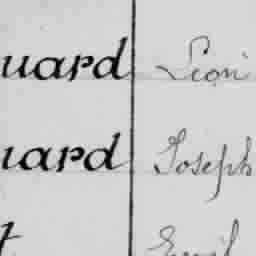 uard Léon
uard Joseph
t Emil